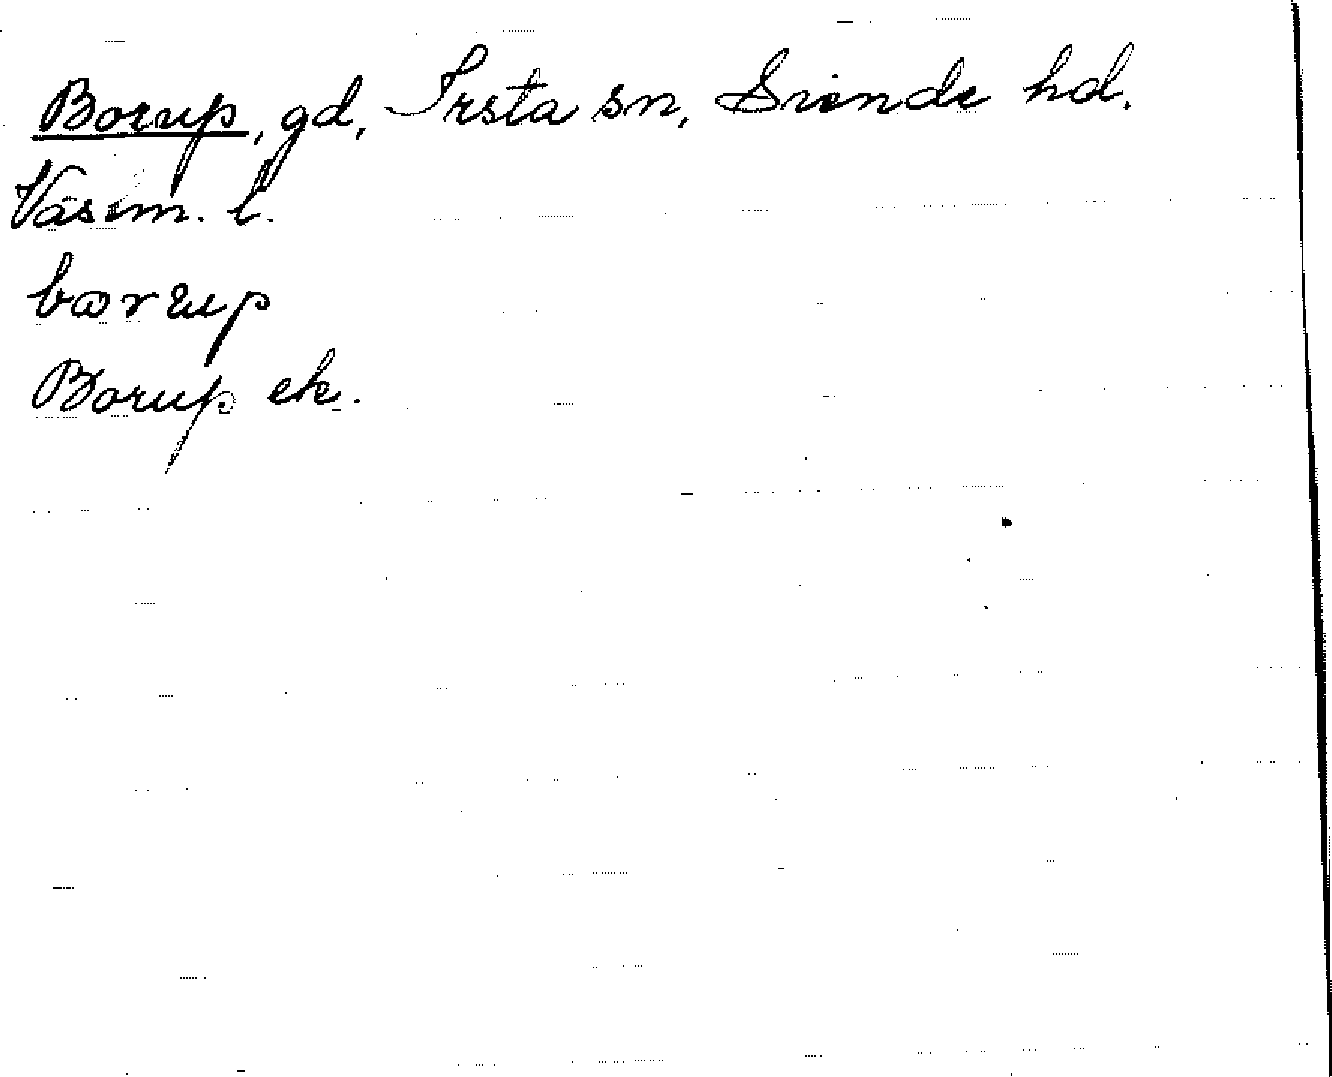 Borup, gd, Irsta sn, Siende hd.
Västm. l.
Borup ek.